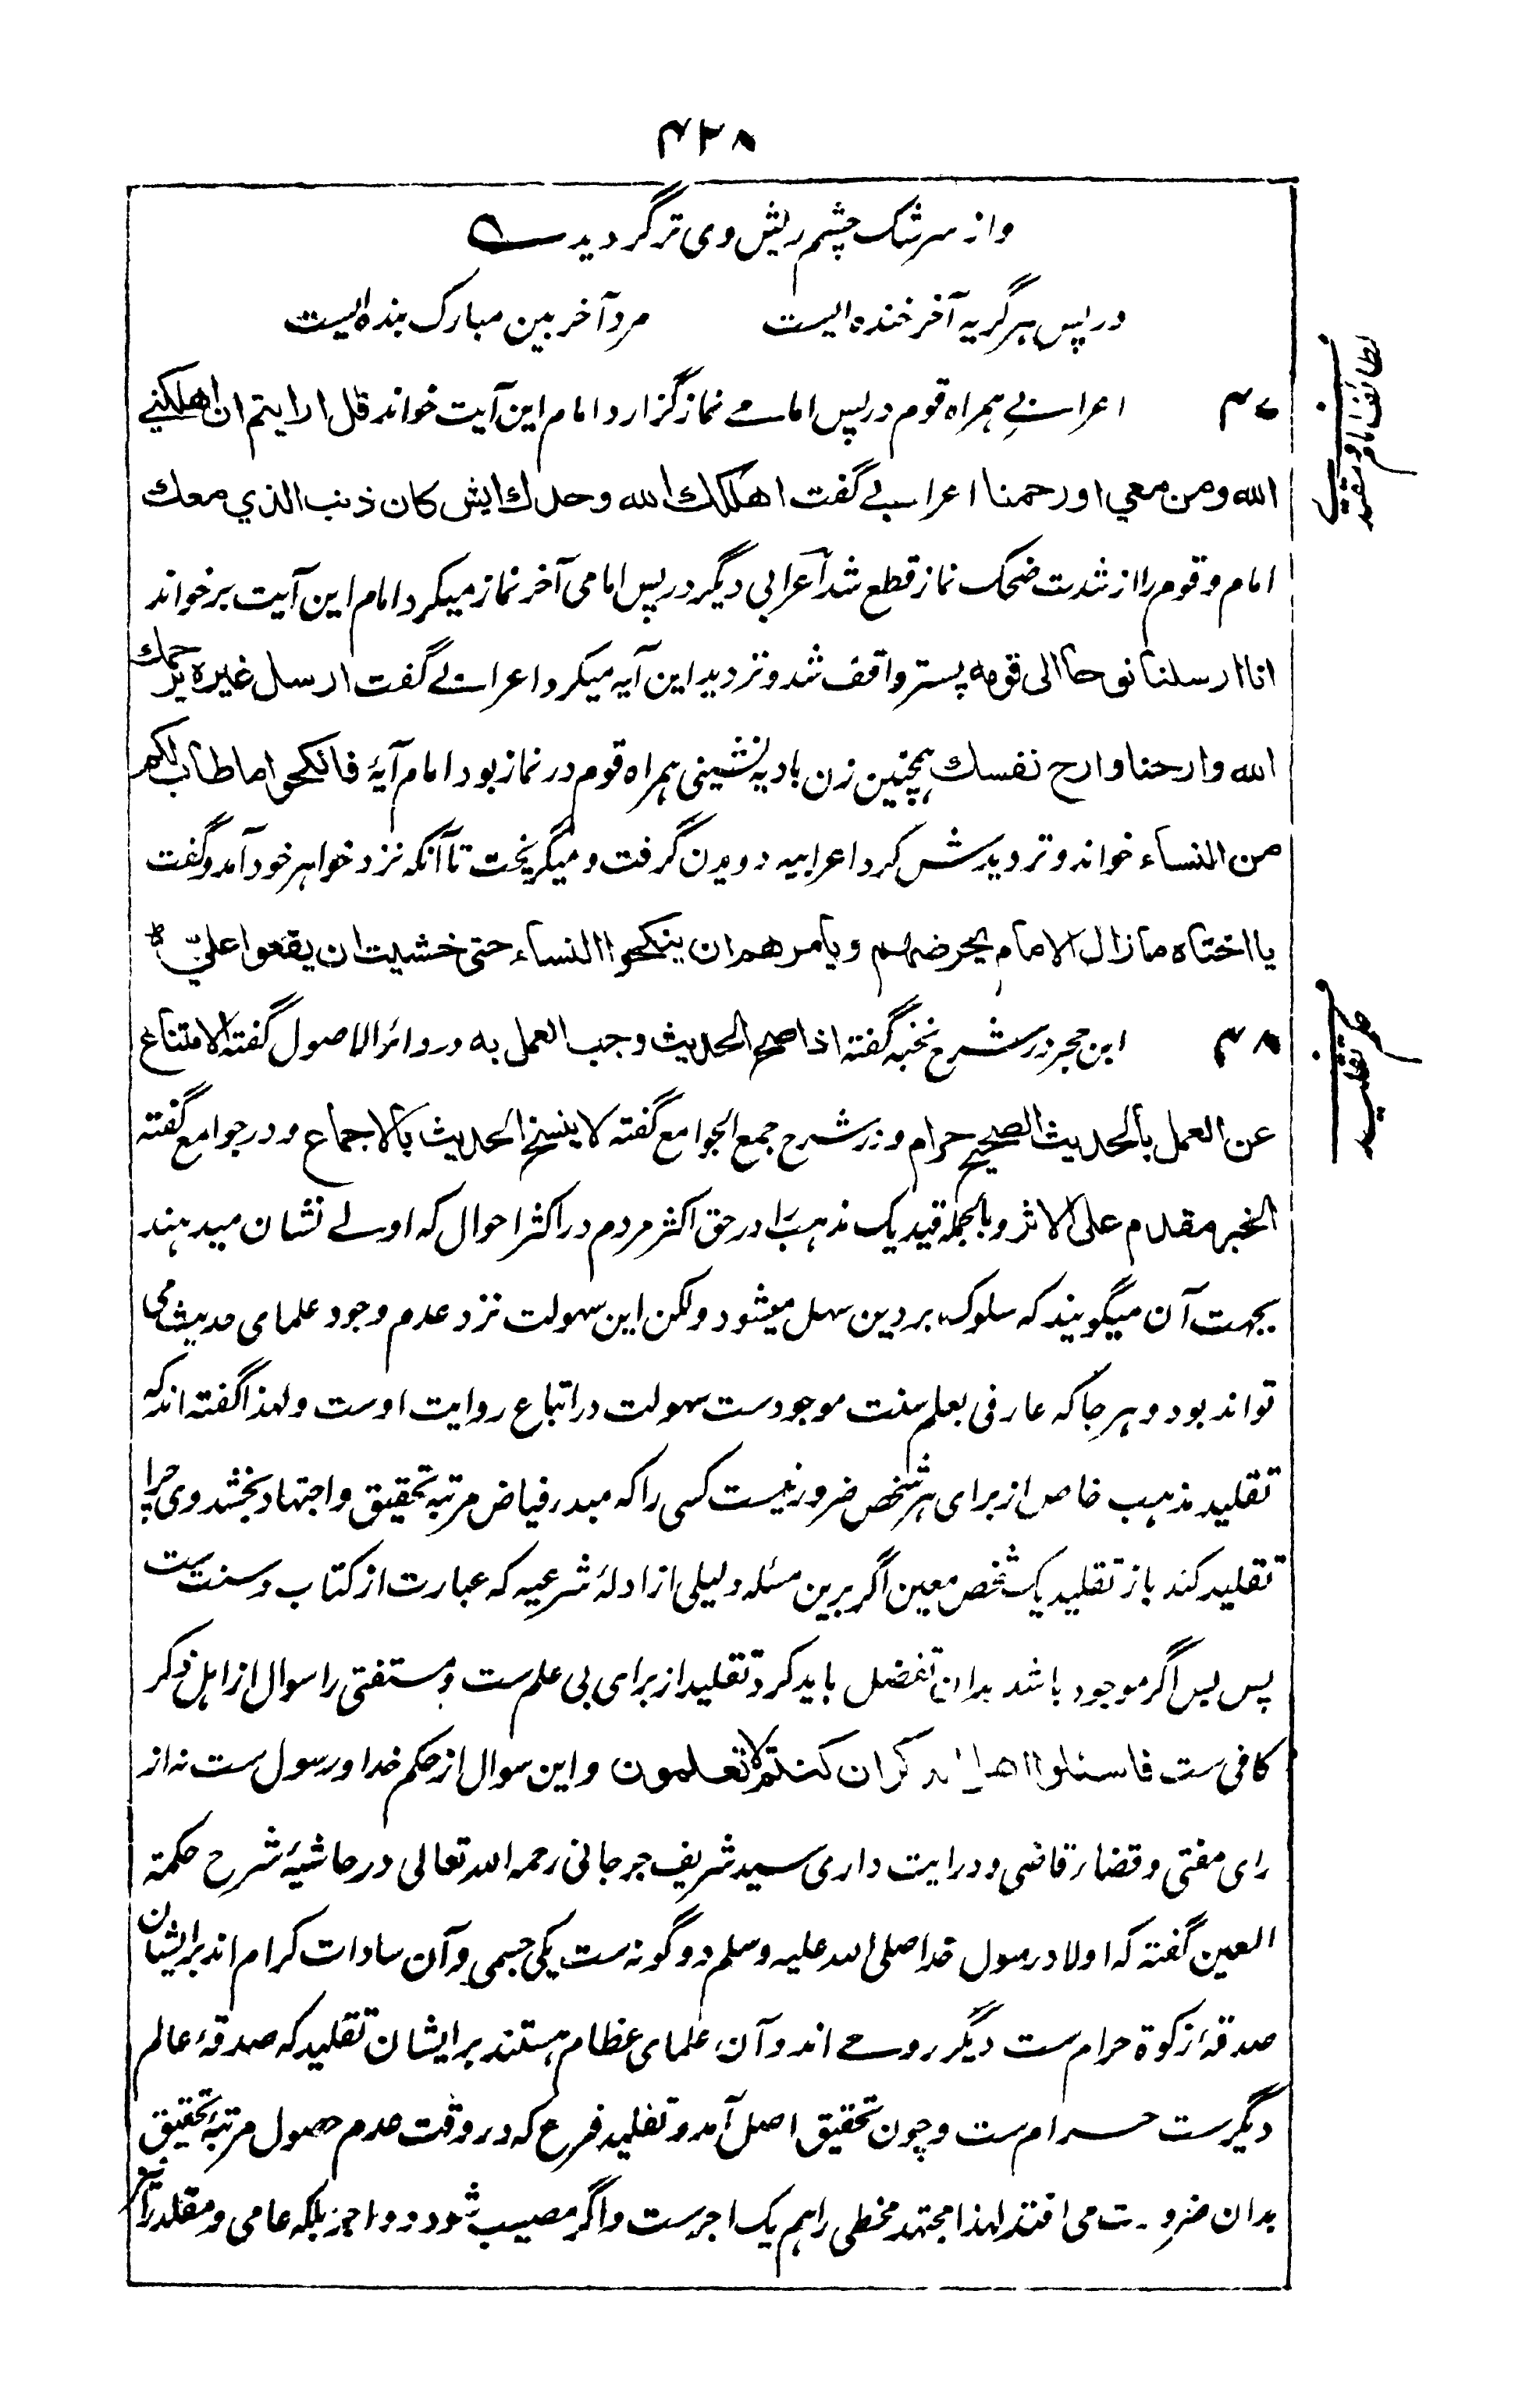 ۴۲۸
واز سرشک چشم ریش وی تر گردید ے
در پس ہر گریہ آخر خندہ ایست مرد آخر بین مبارک بندہ ایست
۴۷ اعرابے ہمراہ قوم در پس امامے نماز گزارد امام این آیت خواند قل ارایتم ان اھلکنی
لطائف امام و مقتدی
الله ومن معي او رحمنا اعرابے گفت اھلکك الله وحدك ایش کان ذنب الذي معك
امام و قوم را از شدت ضحک نماز قطع شد اعرابی دیگر در پس امامی آخر نماز میکرد امام این آیت برخواند
انا ارسلنا نوحا الی قومه پستر واقف شد و تردید این آیہ میکرد اعرابے گفت ارسل غیرہ یرحمك
الله وارحنا وارح نفسك ہمچنین زن بادیہ نشینی ہمراہ قوم در نماز بود امام آیۂ فانکحوا ما طاب لکم
من النساء خواند و تردیدش کرد اعرابیہ دویدن گرفت و میگریخت تا آنکہ نزد خواہر خود آمد و گفت
یا اختاہ ما زال الامام یحرضہم ویامرھم ان ینکحوا النساء حتی خشیت ان یقعوا علیّ
۴۸ ابن حجر در شرح نخبہ گفتہ اذا صح الحدیث وجب العمل به و در دائر الاصول گفتہ الامتناع
عن العمل بالحدیث الصحیح حرام و در شرح جمع الجوامع گفتہ لا ینسخ الحدیث بالاجماع و در جوامع گفتہ
الخبر مقدم علی الاثر و بالجملہ قید یک مذہب را در حق اکثر مردم در اکثر احوال کہ اولے نشان میدہند
بجہت آن میگویند کہ سلوک بر دین سہل میشود و لکن این سہولت نزد عدم وجود علمای حدیث می
تواند بود و ہر جا کہ عارفی بعلم سنت موجودست سہولت در اتباع روایت اوست و لہذا گفتہ اند کہ
تقلید مذہب خاص از برای ہر شخص ضرور نیست کسی را کہ مبدر فیاض مرتبہ تحقیق و اجتہاد بخشد وی چرا
تقلید کند باز تقلید یک شخص معین اگر برین مسئلہ دلیلی از ادلۂ شرعیہ کہ عبارت از کتاب و سنت ست
پس پس اگر موجود باشد بدان تفضل باید کرد تقلید از برای بی علم ست و مستفتی را سوال از اہل ذکر
کافی ست فاسئلوا اھل الذکر ان کنتم لا تعلمون و این سوال از حکم خدا و رسول ست نہ از
رای مفتی و قضاء قاضی و درایت داری سید شریف جرجانی رحمہ اللہ تعالی در حاشیۂ شرح حکمۃ
العین گفتہ کہ اولاد رسول خدا صلی اللہ علیہ وسلم دو گونہ ست یکی جسمی و آن سادات کرام اند بر ایشان
صدقۂ زکوۃ حرام ست دیگر روحے اند و آن علمای عظام ہستند بر ایشان تقلید کہ صدقۂ عالم
دیگرست حرام ست و چون تحقیق اصل آمد و تقلید فرع کہ در وقت عدم حصول مرتبۂ تحقیق
بدان ضرورت می افتد لہذا مجتہد مخطی را ہم یک اجرست و اگر مصیب شود دو اجر بلکہ عامی و مقلد را